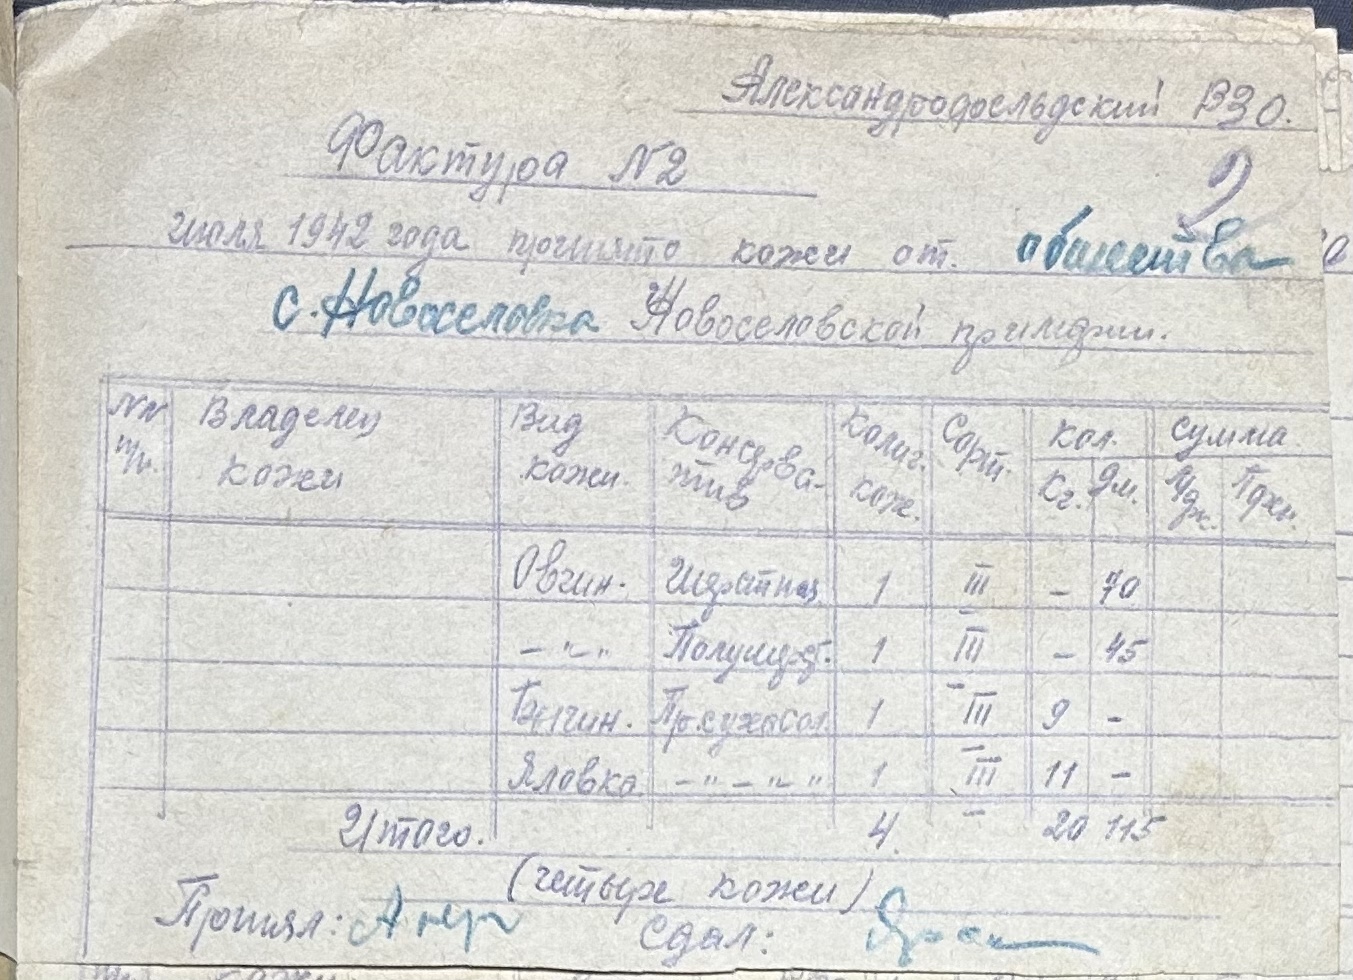 Александрофельдский ВЗО.
Фактура N2
2
июля 1942 года принято кожи от. общества
с. Новоселовка Новоселовской примэрии.
NN п/п. Владелец кожи Вид кожи. Консерватив Колич. кож. Сорт. Кол. Сумма
Кг. Дм.
Овчин. 1 III - 70
-"-"- 1 III - 45
Бычин. Пр.сухосол. 1 III 9 -
Яловка -"-"-" 1 III 11 -
Итого. 4. - 20 115
(четыре кожи)
Принял: Сдал: